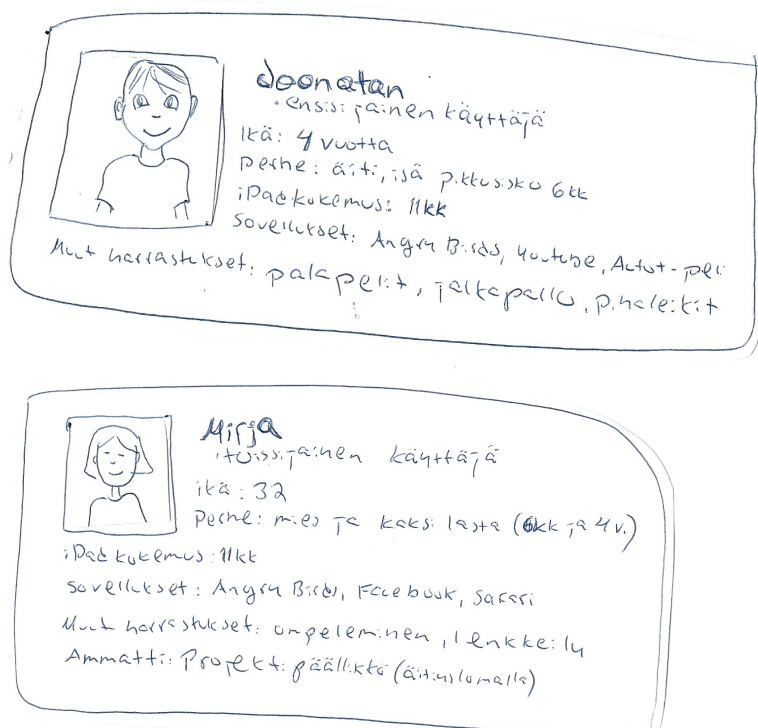 Joonatan
• ensisijainen käyttäjä
Ikä: 4 vuotta
perhe: äiti, isä pikkusisko 6kk
iPad kokemus: 11kk
Sovellukset: Angry Birds, Youtube, Autot-peli
Muut harrastukset: palapelit, jalkapallo, pihaleikit
Mirja
• toissijainen käyttäjä
ikä: 32
Perhe: mies ja kaksi lasta (6kk ja 4v.)
iPad kokemus: 11kk
Sovellukset: Angry Birds, Facebook, Safari
Muut harrastukset: ompeleminen, lenkkeily
Ammatti: Projektipäällikkö (äitiyslomalla)